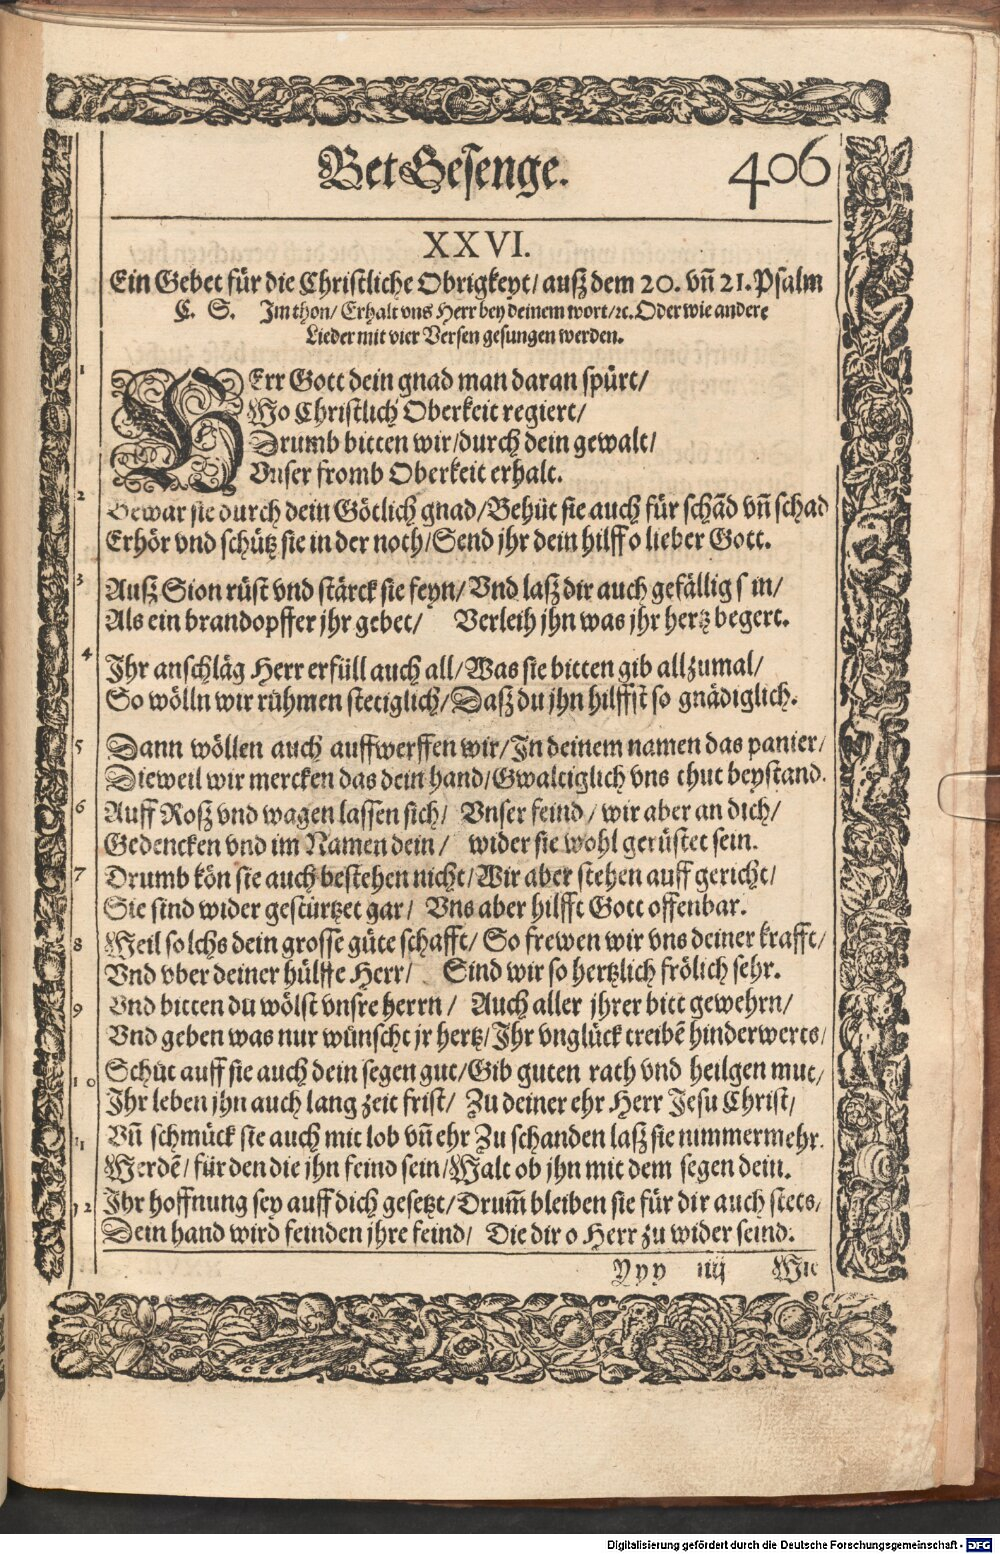 BetGesenge. 406
XXVI.
Ein Gebet für die Christliche Obrigkeyt/ auß dem 20. vñ 21. Psalm
C. S. Im thon/ Erhalt vns Herr bey deinem wort/ꝛc. Oder wie andere
Lieder mit vier Versen gesungen werden.
1 HErr Gott dein gnad man daran spürt/
Wo Christlich Oberkeit regiert/
Drumb bitten wir/durch dein gewalt/
Vnser fromb Oberkeit erhalt.
2 Bewar sie durch dein Götlich gnad/Behüt sie auch für schãd vñ schad
Erhör vnd schütz sie in der noth/Send jhr dein hilff o lieber Gott.
3 Auß Sion rüst vnd stärck sie feyn/ Vnd laß dir auch gefällig s in/
Als ein brandopffer jhr gebet/ Verleih jhn was jhr hertz begert.
4 Ihr anschläg Herr erfüll auch all/Was sie bitten gib allzumal/
So wölln wir rühmen stetiglich/Daß du jhn hilffst so gnädiglich.
5 Dann wöllen auch auffwerffen wir/In deinem namen das panier/
Dieweil wir mercken das dein hand/Gwaltiglich vns thut beystand.
6 Auff Roß vnd wagen lassen sich/ Vnser feind/ wir aber an dich/
Gedencken vnd im Namen dein/ wider sie wohl gerüstet sein.
7 Drumb kön sie auch bestehen nicht/Wir aber stehen auff gericht/
Sie sind wider gestürtzet gar/ Vns aber hilfft Gott offenbar.
8 Weil solchs dein grosse güte schafft/ So frewen wir vns deiner krafft/
Vnd vber deiner hülffe Herr/ Sind wir so hertzlich frölich sehr.
9 Vnd bitten du wölst vnsre herrn/ Auch aller jhrer bitt gewehrn/
Vnd geben was nur wünscht jr hertz/Ihr vnglück treibẽ hinderwerts/
10 Schüt auff sie auch dein segen gut/Gib guten rath vnd heilgen mut/
Ihr leben jhn auch lang zeit frist/ Zu deiner ehr Herr Jesu Christ/
11 Vñ schmück sie auch mit lob vñ ehr Zu schanden laß sie nimmermehr.
Werdẽ/ für den die jhn feind sein/Walt ob jhn mit dem segen dein.
12 Ihr hoffnung sey auff dich gesetzt/Drum̃ bleiben sie für dir auch stets/
Dein hand wird feinden jhre feind/ Die dir o Herr zu wider seind.
Yyy iiij
Digitalisierung gefördert durch die Deutsche Forschungsgemeinschaft - DFG